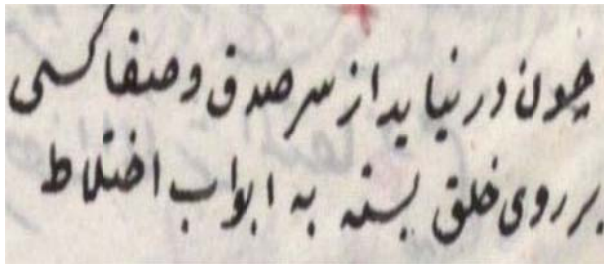 چون در نیاید از سر صدق و صفا کسی
بر روی خلق بسته به ابواب اختلاط